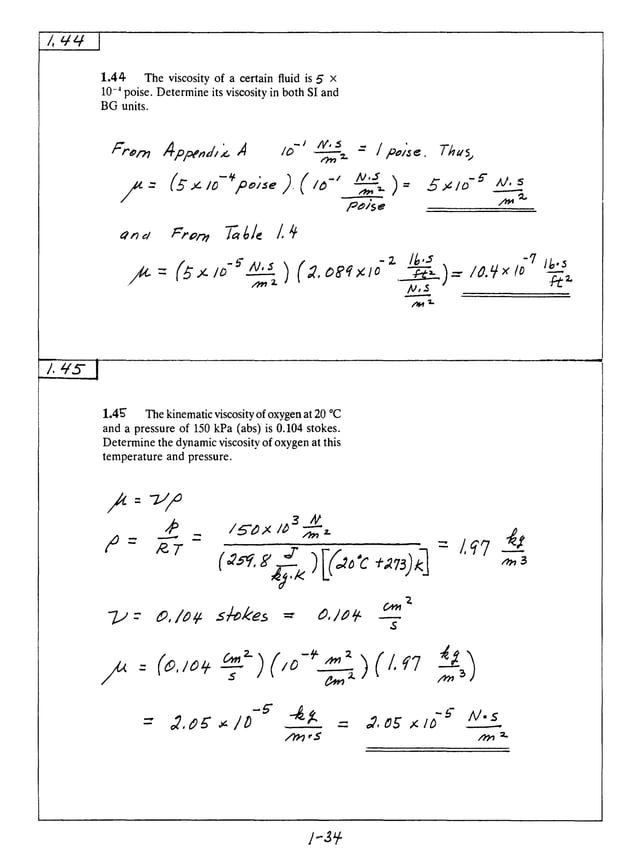 1.44
1.44 The viscosity of a certain fluid is 5 ×
10⁻⁴ poise. Determine its viscosity in both SI and
BG units.
From Appendix A 10⁻¹ N·s/m² = 1 poise. Thus,
μ = (5 × 10⁻⁴ poise)·(10⁻¹ (N·s/m²)/poise) = 5 × 10⁻⁵ N·s/m²
and From Table 1.4
μ = (5 × 10⁻⁵ N·s/m²)(2.089 × 10⁻² (lb·s/ft²)/(N·s/m²)) = 10.4 × 10⁻⁷ lb·s/ft²
1.45
1.45 The kinematic viscosity of oxygen at 20 °C
and a pressure of 150 kPa (abs) is 0.104 stokes.
Determine the dynamic viscosity of oxygen at this
temperature and pressure.
μ = νρ
ρ = p/RT = (150 × 10³ N/m²)/((259.8 J/kg·K)[(20°C + 273)K]) = 1.97 kg/m³
ν = 0.104 stokes = 0.104 cm²/s
μ = (0.104 cm²/s)(10⁻⁴ m²/cm²)(1.97 kg/m³)
= 2.05 × 10⁻⁵ kg/m·s = 2.05 × 10⁻⁵ N·s/m²
1-34